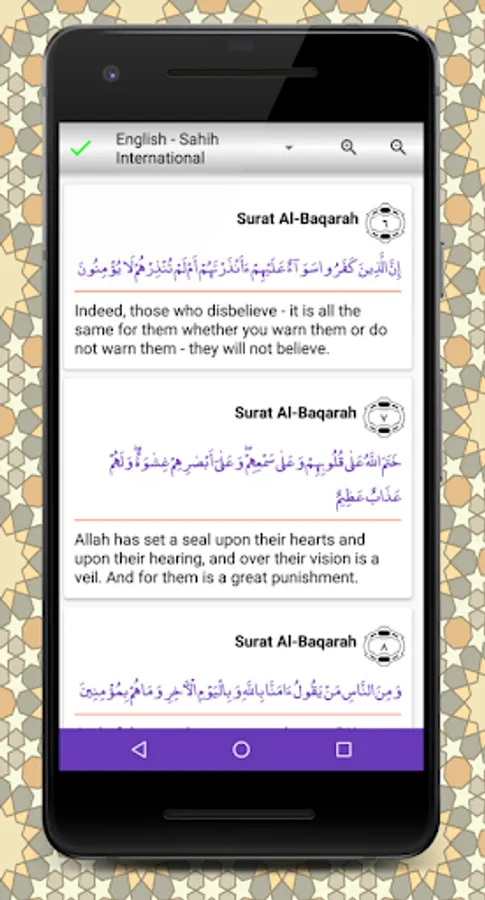 English - Sahih
International
Surat Al-Baqarah ٦
إِنَّ الَّذِينَ كَفَرُوا سَوَآءٌ عَلَيْهِمْ ءَأَنذَرْتَهُمْ أَمْ لَمْ تُنذِرْهُمْ لَا يُؤْمِنُونَ
Indeed, those who disbelieve - it is all the
same for them whether you warn them or do
not warn them - they will not believe.
Surat Al-Baqarah ٧
خَتَمَ اللَّهُ عَلَىٰ قُلُوبِهِمْ وَعَلَىٰ سَمْعِهِمْ ۖ وَعَلَىٰٓ أَبْصَٰرِهِمْ غِشَٰوَةٌ ۖ وَلَهُمْ
عَذَابٌ عَظِيمٌ
Allah has set a seal upon their hearts and
upon their hearing, and over their vision is a
veil. And for them is a great punishment.
Surat Al-Baqarah ٨
وَمِنَ النَّاسِ مَن يَقُولُ ءَامَنَّا بِاللَّهِ وَبِالْيَوْمِ الْءَاخِرِ وَمَا هُم بِمُؤْمِنِينَ